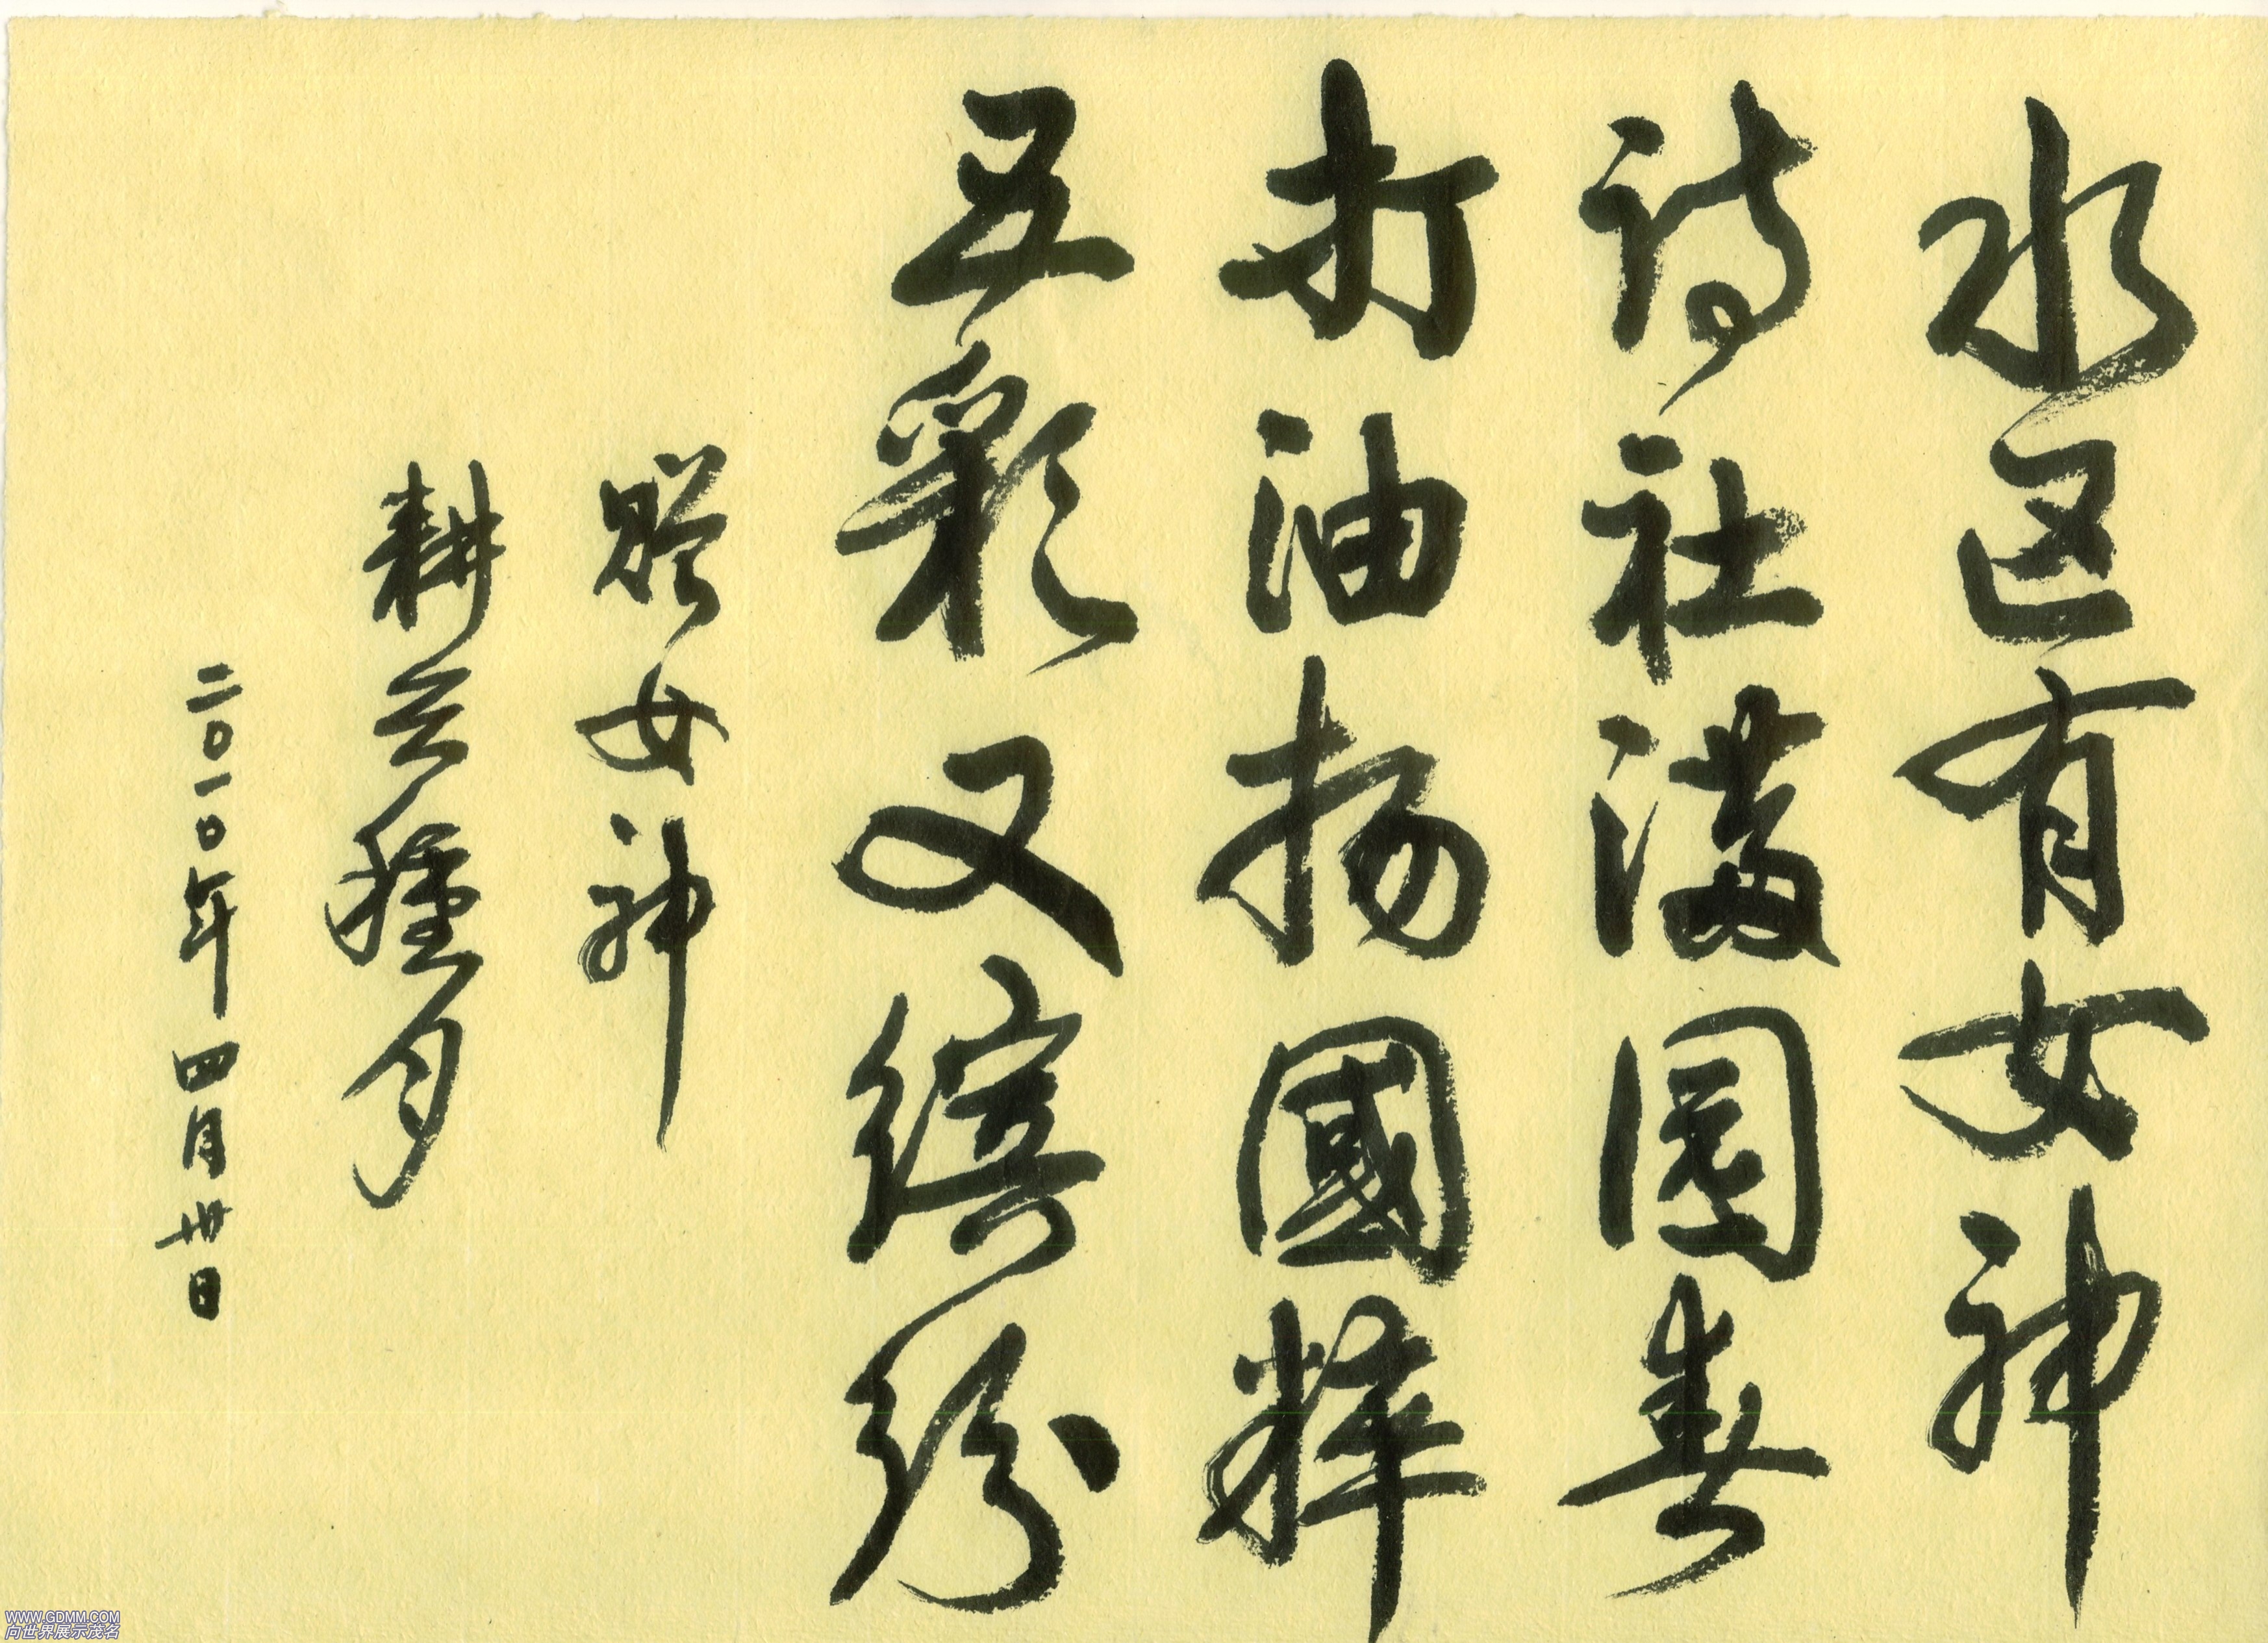 水区有女神
诗社满园春
打油扬國粹
五彩又缤纷
赠女神
耕云種月
二〇一〇年四月卅日
WWW.GDMM.COM
向世界展示茂名